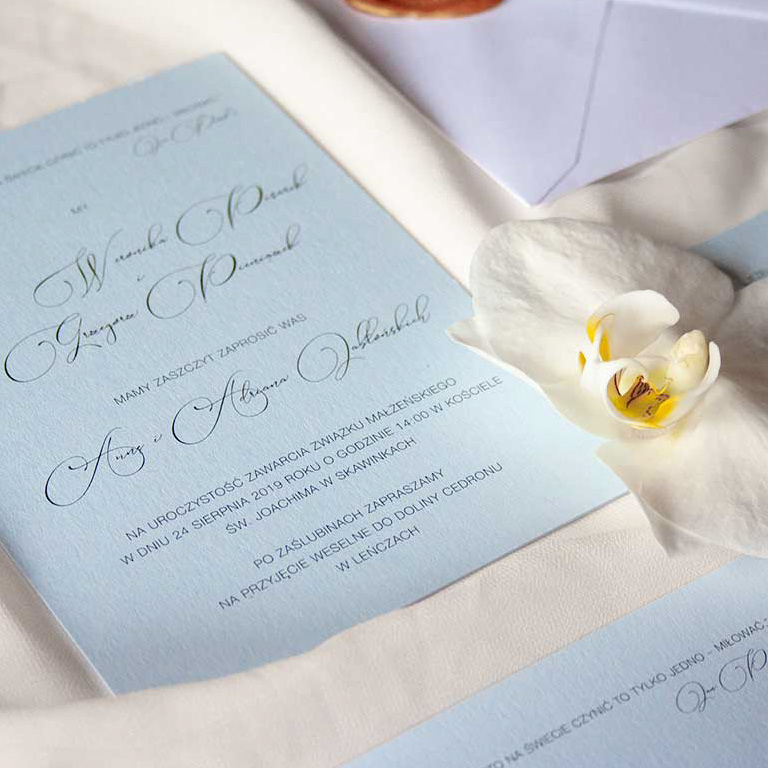 ŚWIECIE CZYNIĆ TO TYLKO JEDNO –
MY
Weronika
i
Grzegorz
MAMY ZASZCZYT ZAPROSIĆ WAS
Annę i Adriana Jabłońskich
NA UROCZYSTOŚĆ ZAWARCIA ZWIĄZKU MAŁŻEŃSKIEGO
W DNIU 24 SIERPNIA 2019 ROKU O GODZINIE 14:00 W KOŚCIELE
ŚW. JOACHIMA W SKAWINKACH
PO ZAŚLUBINACH ZAPRASZAMY
NA PRZYJĘCIE WESELNE DO DOLINY CEDRONU
W LEŃCZACH
TO NA ŚWIECIE CZYNIĆ TO TYLKO JEDNO – MIŁOWAĆ
Jan